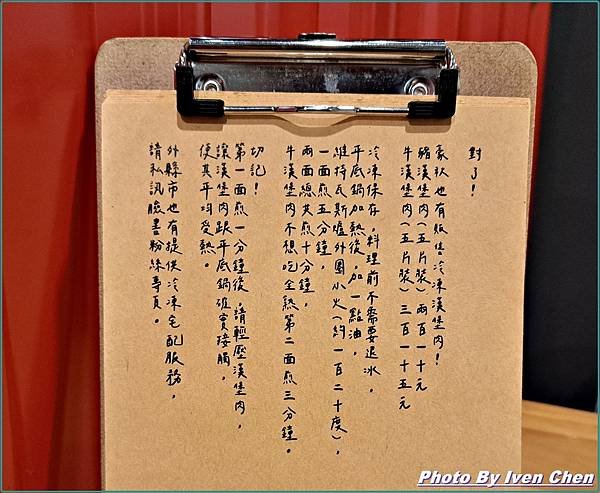 對了！
豪秋也有販售冷凍漢堡肉！
豬漢堡肉（五片裝）兩百一十元
牛漢堡肉（五片裝）三百一十五元
冷凍保存，料理前不需要退冰，
平底鍋加熱後，加一點油，
維持瓦斯爐外圍小火（約一百二十度），
一面煎五分鐘，
兩面總共煎十分鐘，
牛漢堡肉不想吃全熟第二面煎三分鐘。
切記！
第一面煎一分鐘後，請輕壓漢堡肉，
讓漢堡肉跟平底鍋確實接觸，
使其平均受熱。
外縣市也有提供冷凍宅配服務，
請私訊臉書粉絲專頁。
Photo By Iven Chen